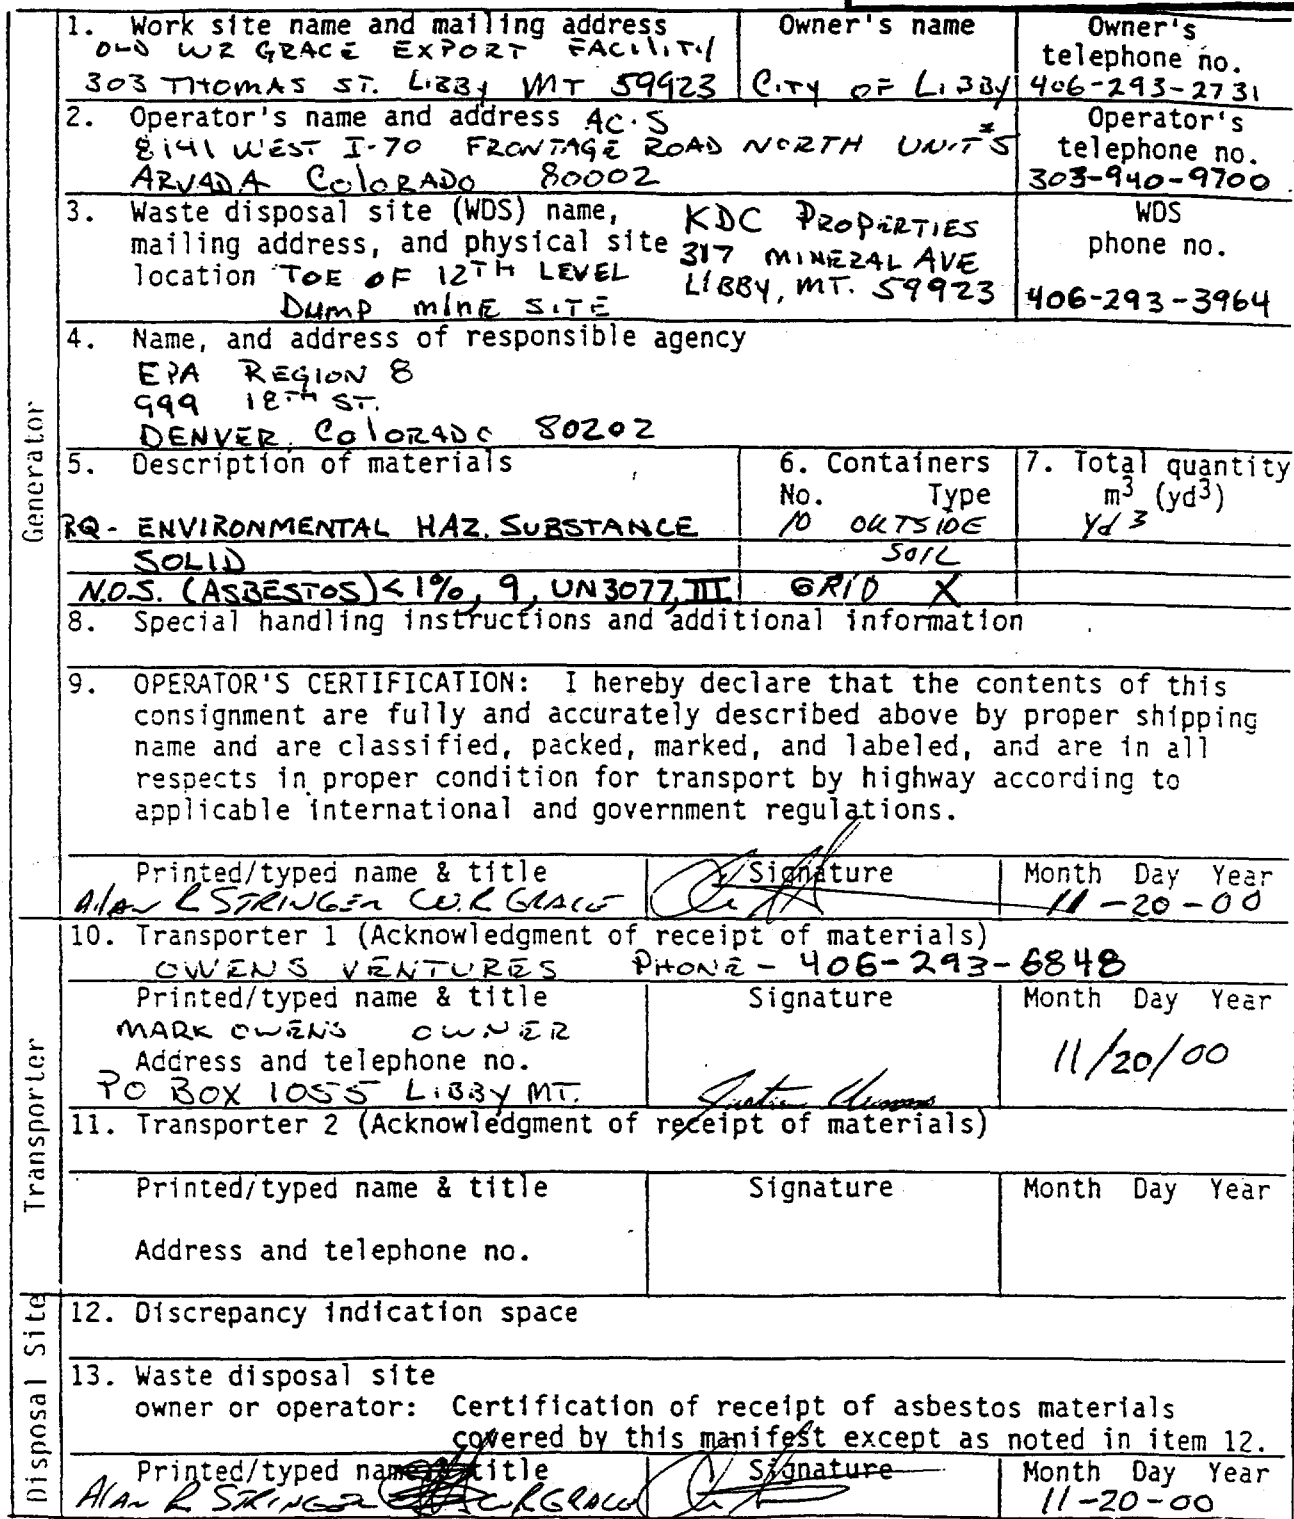 1. Work site name and mailing address
OLD WR GRACE EXPORT FACILITY
303 THOMAS ST. LIBBY MT 59923
Owner's name
CITY OF LIBBY
Owner's
telephone no.
406-293-2731
2. Operator's name and address AC·S
8141 WEST I-70 FRONTAGE ROAD NORTH UNIT #5
ARVADA COLORADO 80002
Operator's
telephone no.
303-940-9700
3. Waste disposal site (WDS) name,
mailing address, and physical site
location TOE OF 12TH LEVEL
DUMP MINE SITE
KDC PROPERTIES
317 MINERAL AVE
LIBBY, MT. 59923
WDS
phone no.
406-293-3964
4. Name, and address of responsible agency
EPA REGION 8
999 18TH ST.
DENVER, COLORADO 80202
Generator
5. Description of materials
RQ - ENVIRONMENTAL HAZ. SUBSTANCE
SOLID
N.O.S. (ASBESTOS) < 1%, 9, UN3077, III
6. Containers
No. Type
10 OUTSIDE
SOIL
GRID X
7. Total quantity
m3 (yd3)
Yd 3
8. Special handling instructions and additional information
9. OPERATOR'S CERTIFICATION: I hereby declare that the contents of this
consignment are fully and accurately described above by proper shipping
name and are classified, packed, marked, and labeled, and are in all
respects in proper condition for transport by highway according to
applicable international and government regulations.
Printed/typed name & title
Alan R STRINGER W.R GRACE
Signature
Month Day Year
11-20-00
Transporter
10. Transporter 1 (Acknowledgment of receipt of materials)
OWENS VENTURES PHONE - 406-293-6848
Printed/typed name & title
MARK OWENS OWNER
Address and telephone no.
PO BOX 1055 LIBBY MT.
Signature
Month Day Year
11/20/00
11. Transporter 2 (Acknowledgment of receipt of materials)
Printed/typed name & title
Signature
Month Day Year
Address and telephone no.
Disposal Site
12. Discrepancy indication space
13. Waste disposal site
owner or operator: Certification of receipt of asbestos materials
covered by this manifest except as noted in item 12.
Printed/typed name & title
Alan R STRINGER W.R GRACE
Signature
Month Day Year
11-20-00